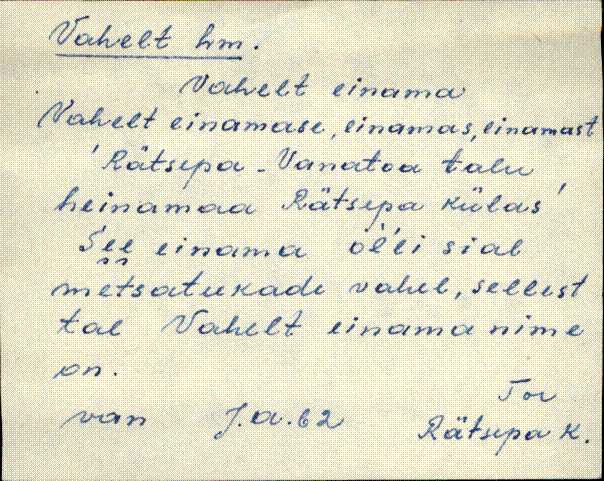 Vahelt hm.
Vahelt einama
Vahelt einamase, einamas, einamast
'Rätsepa-Vanatoa talu
heinamaa Rätsepa külas'
See einama ol'l'i sial
metsatukade vahel, sellest
tal Vahelt einama nime
on.
Tor
van J.a.62 Rätsepa k.